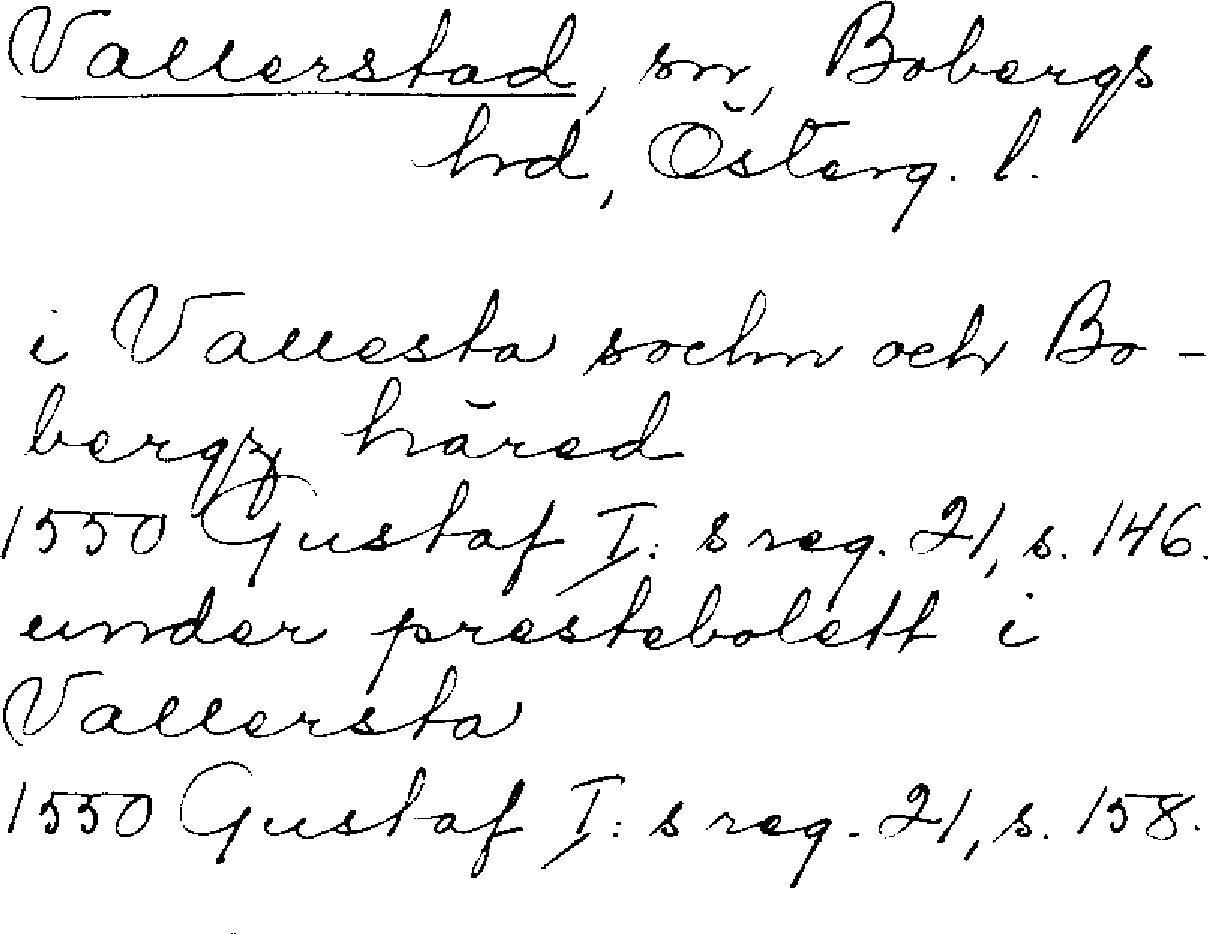 Vallerstad, sn, Bobergs
hrd, Österg. l.
i Vallesta sochn och Bo-
bergz häred
1550 Gustaf I:s reg. 21, s. 146.
under prestebolett i
Vallersta
1550 Gustaf I:s reg. 21, s. 158.